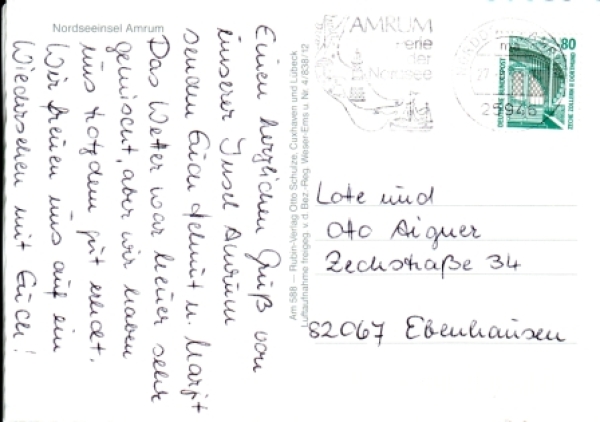 Nordseeinsel Amrum
Einen herzlichen Gruß von
unserer Insel Amrum
senden Euch Helmut u. Margit
Das Wetter war heuer sehr
gemischt, aber wir haben
uns trotzdem gut erholt.
Wir freuen uns auf ein
Wiedersehen mit Euch!
Am 588 — Rubin-Verlag Otto Schulze, Cuxhaven und Lübeck
Luftaufnahme freigeg. v. d. Bez.-Reg. Weser-Ems u. Nr. 4/838/12
AMRUM
Perle
der
Nordsee
25946
80
DEUTSCHE BUNDESPOST
ZECHE ZOLLERN II DORTMUND
Lote und
Otto Aigner
Zechstraße 34
82067 Ebenhausen